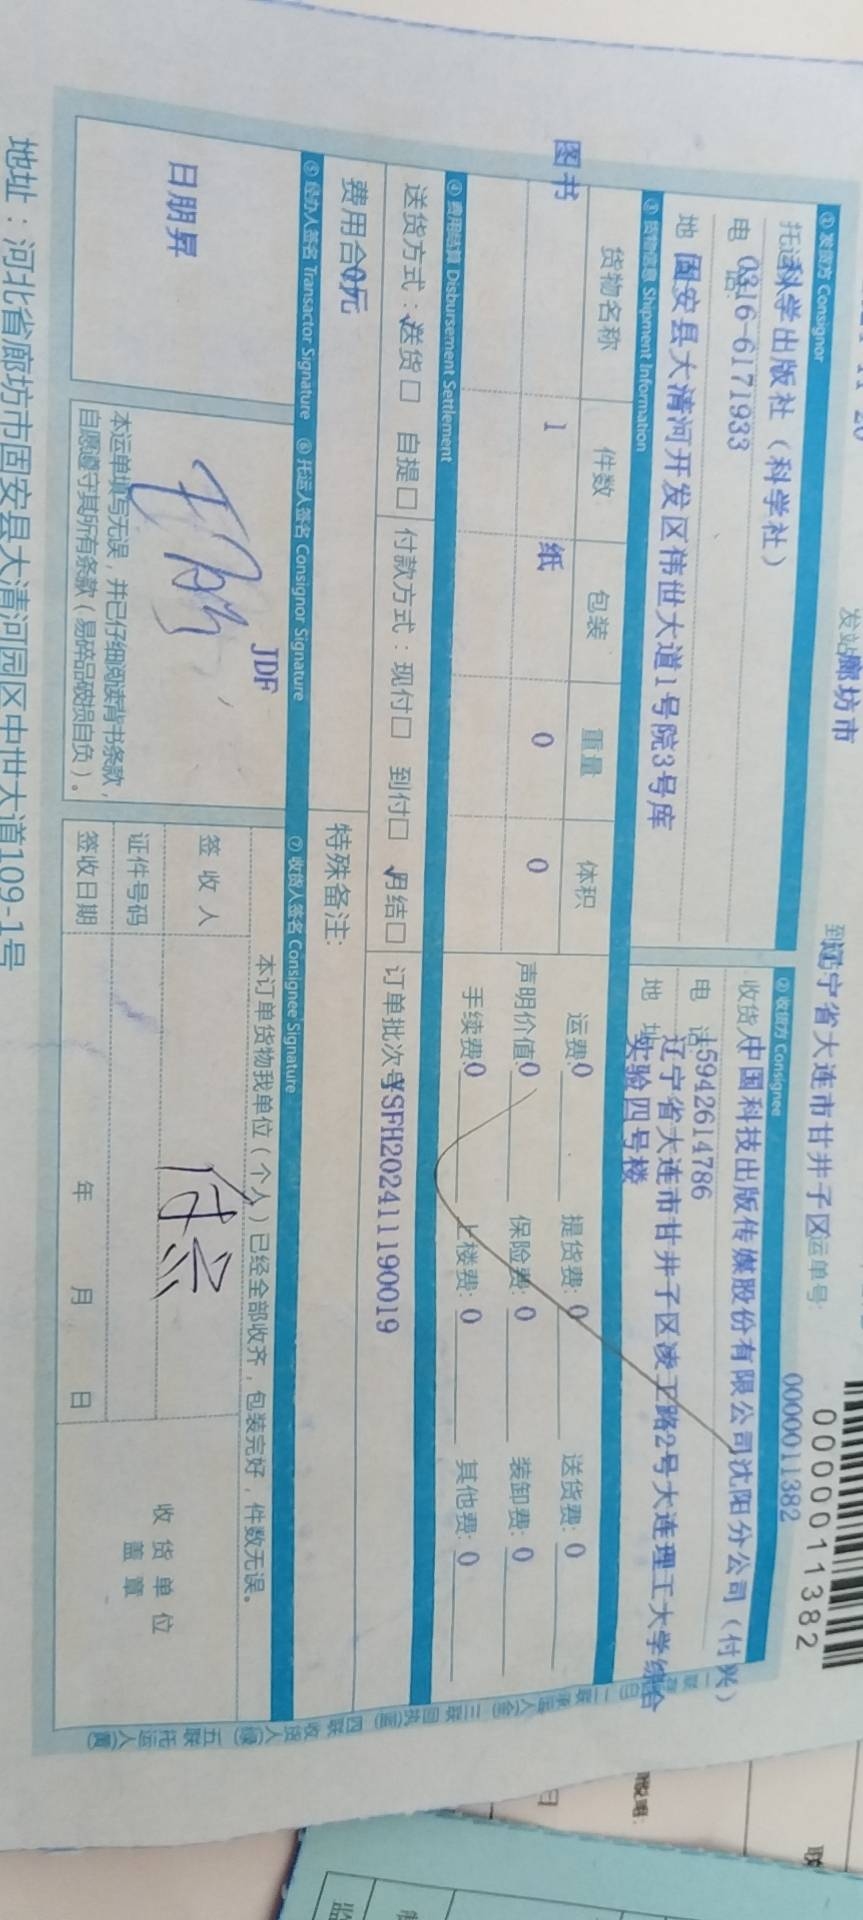 发站 廊坊市 到站 辽宁省大连市甘井子区 运单号:
0000011382
0000011382
① 发货方 Consignor
托运 科学出版社（科学社）
电 话: 0316-6171933
地 固安县大清河开发区伟世大道1号院3号库
② 收货方 Consignee
收货人 中国科技出版传媒股份有限公司沈阳分公司（付兴）
电 话: 15942614786
地 址 辽宁省大连市甘井子区凌工路2号大连理工大学综合
实验四号楼
③ 货物信息 Shipment Information
货物名称 件数 包装 重量 体积
图书 1 纸 0 0
运费: 0 提货费: 0 送货费: 0
声明价值 0 保险费: 0 装卸费: 0
手续费: 0 上楼费: 0 其他费: 0
④ 费用结算 Disbursement Settlement
送货方式：√送货□ 自提□ 付款方式：现付□ 到付□ √月结□ 订单批次号 YSFH202411190019
费用合 0元
特殊备注:
⑤ 经办人签名 Transactor Signature ⑥ 托运人签名 Consignor Signature ⑦ 收货人签名 Consignee Signature
日朋昇
JDF
本运单填写无误，并已仔细阅读背书条款，
自愿遵守其所有条款（易碎品破损自负）。
本订单货物我单位（个人）已经全部收齐，包装完好，件数无误。
签 收 人
证件号码
签收日期 年 月 日
收 货 单 位
盖 章
地址：河北省廊坊市固安县大清河园区中世大道109-1号